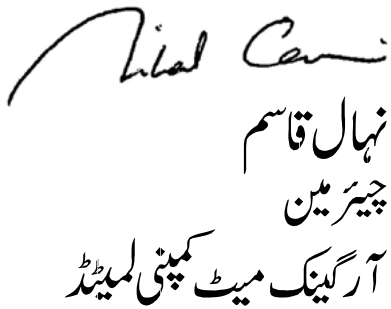 Nihal Cassim
نہال قاسم
چیئرمین
آرگینک میٹ کمپنی لمیٹڈ